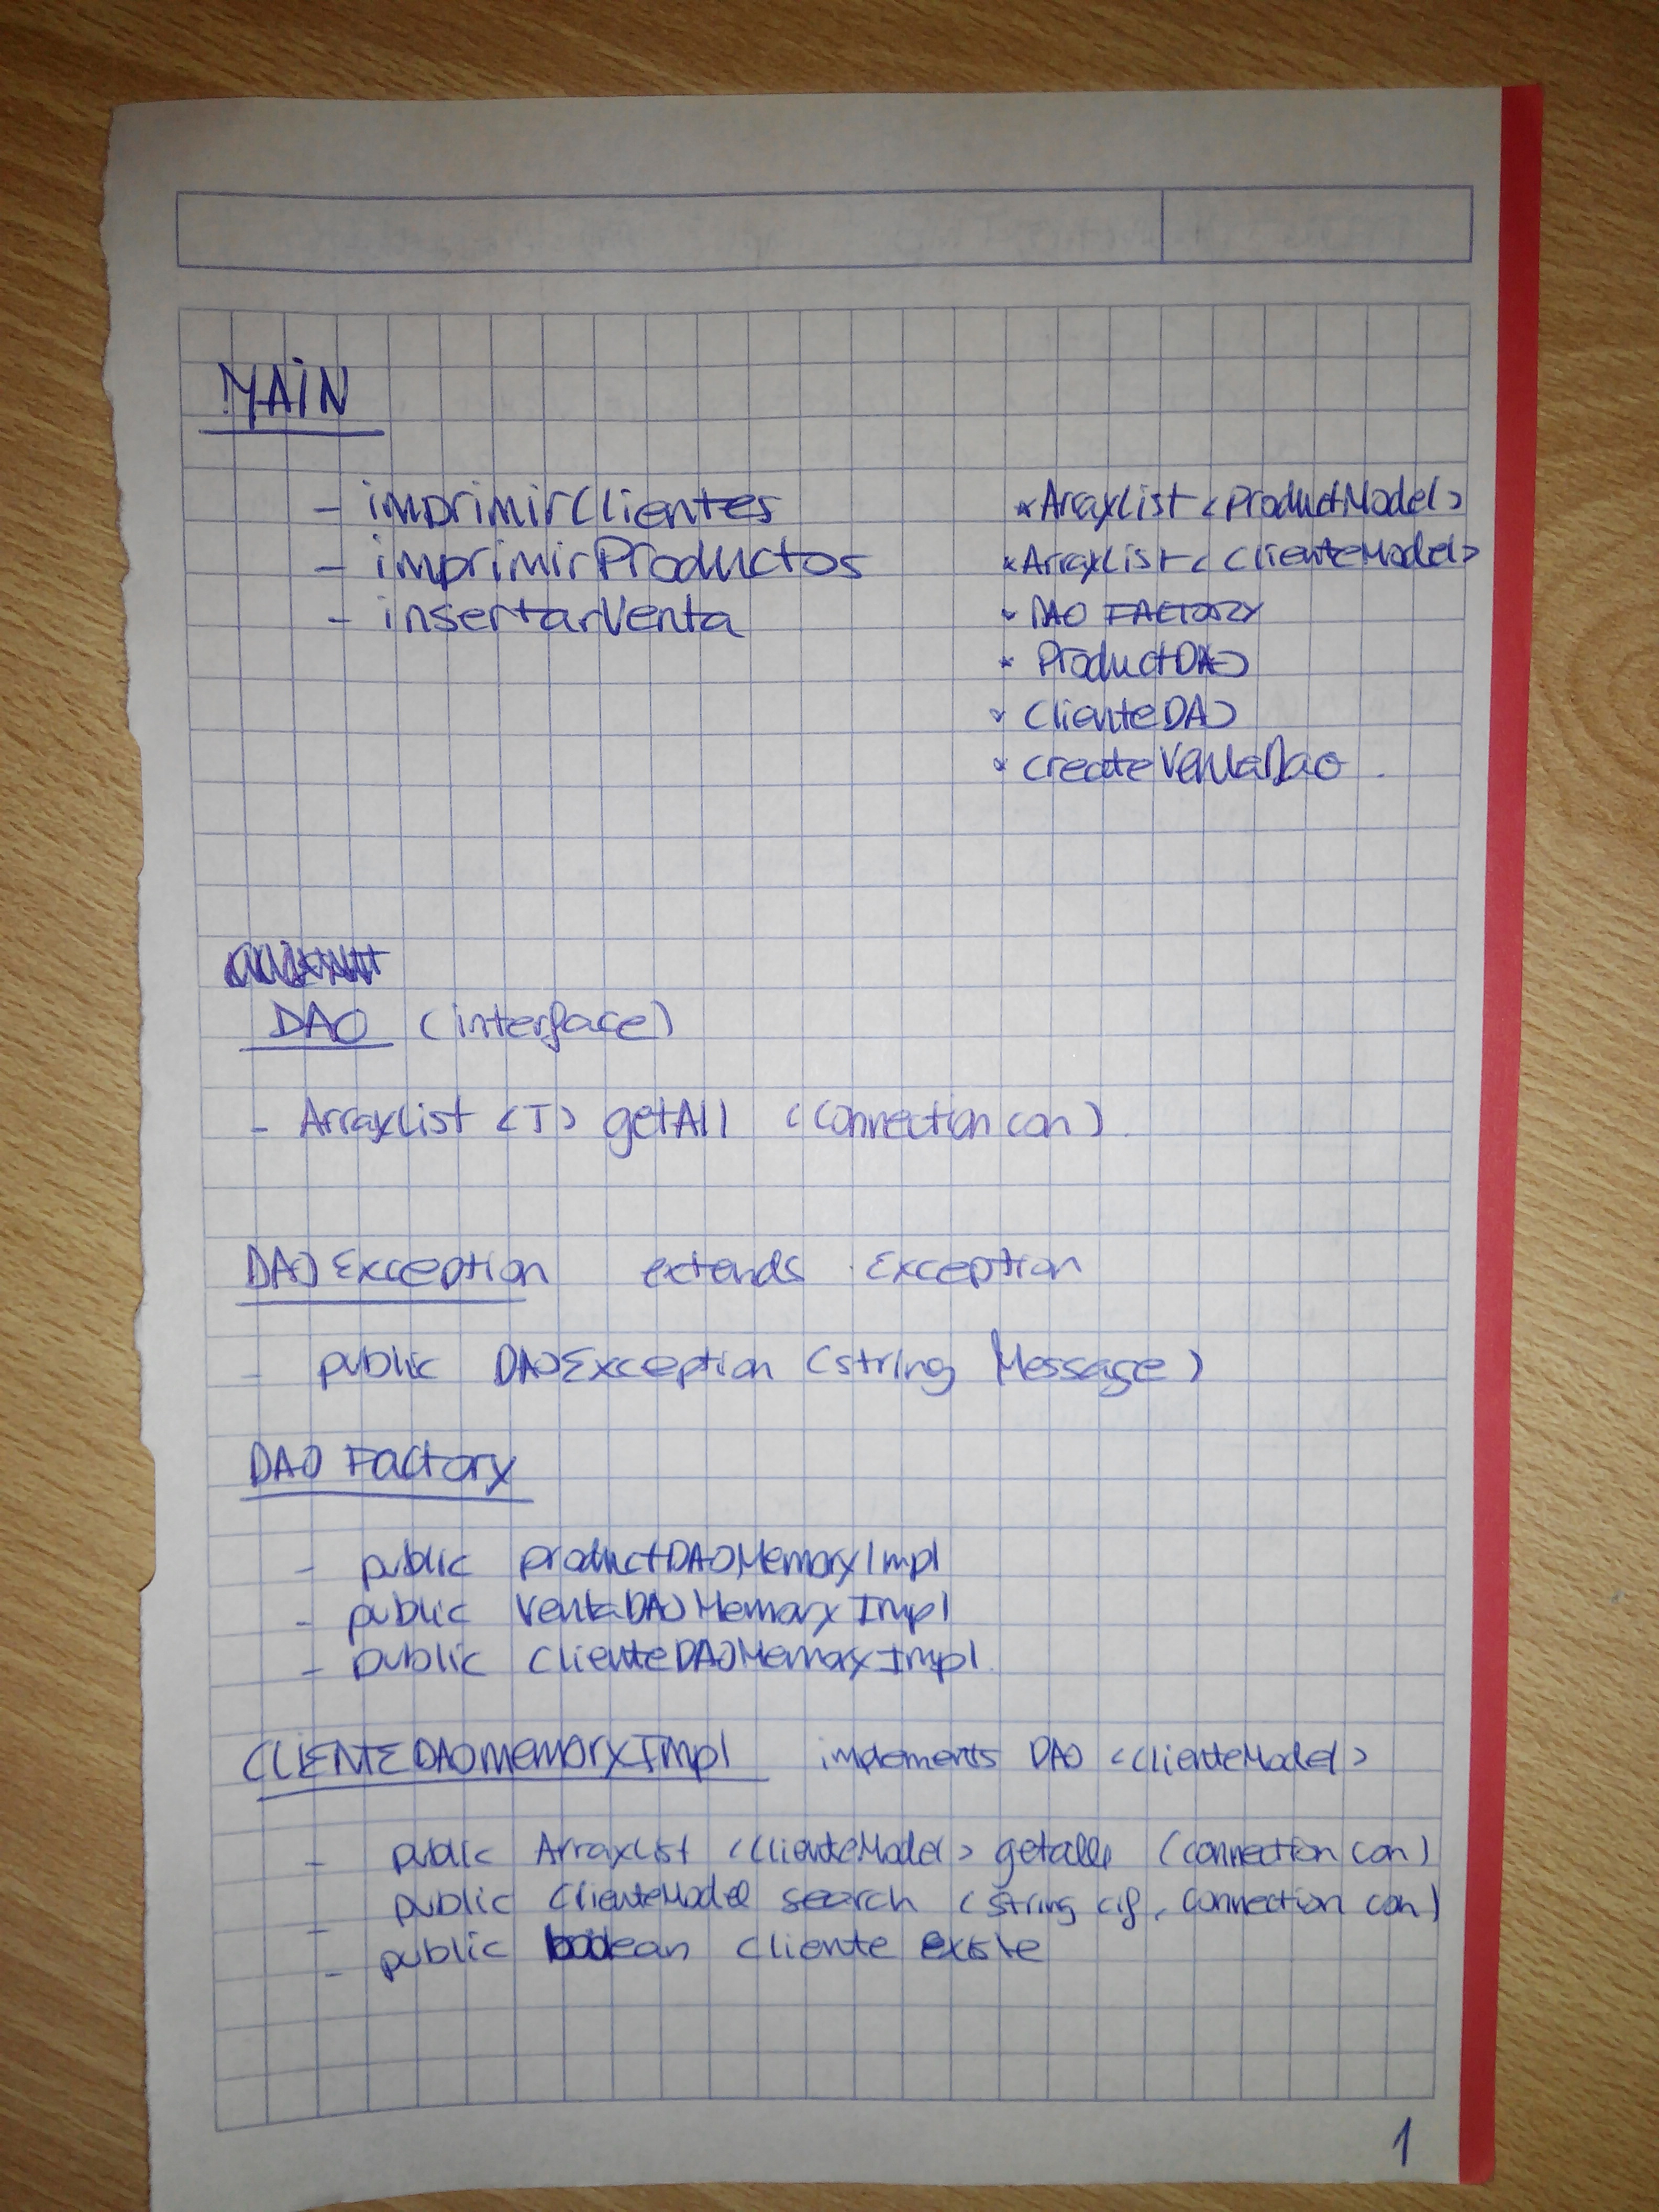 MAIN
- imprimirClientes
- imprimirProductos
- insertarVenta
* ArrayList <ProductModel>
* ArrayList <ClienteModel>
* DAO FACTORY
* ProductDAO
* ClienteDAO
* createVentaDao
DAO (interface)
- ArrayList <T> getAll (Connection con)
DAO Exception extends Exception
- public DAOException (string Message)
DAO Factory
- public productDAOMemoryImpl
- public VentaDAOMemoryImpl
- public ClienteDAOMemoryImpl
CLIENTEDAOMEMORYImpl implements DAO <ClienteModel>
- public ArrayList <ClienteModel> getall (connection con)
- public ClienteModel search (string cif, Connection con)
- public boolean cliente existe
1